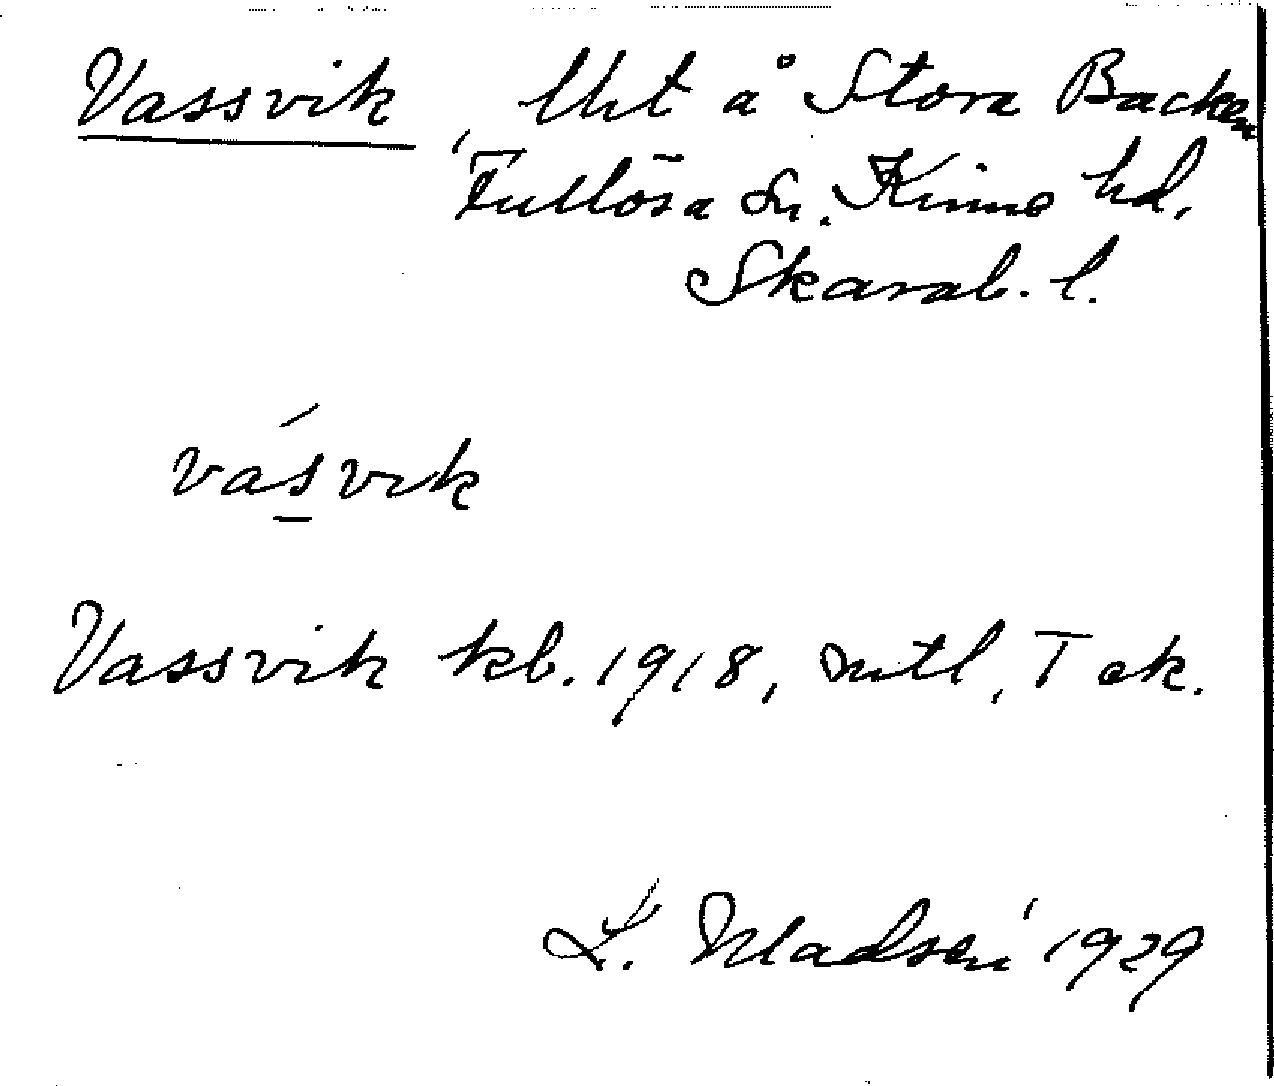 Vassvik, Uht å Stora Backen
Fullösa sn. Kinne hd,
Skarab. l.
vásvik
Vassvik kb. 1918, muntl, T ek.
L. Madsén 1929